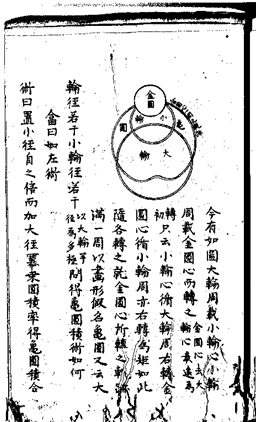 今有如圖大輪周載小輪心小輪
周載金圓心而轉之
金圓心去大
輪心最遠為
轉
初
只云小輪心循大輪周右轉金
圓心循小輪周亦右轉為矩如此
隨各轉之就金圓心所轉之軌
滿一周以畫形假名龜圓又云大
輪徑若干小輪徑若干
問得龜圓積術如何
答曰如左術
術曰置小徑自之倍而加大徑冪乘圓積率得龜圓積合
金圓
小
輪
大
輪
圓